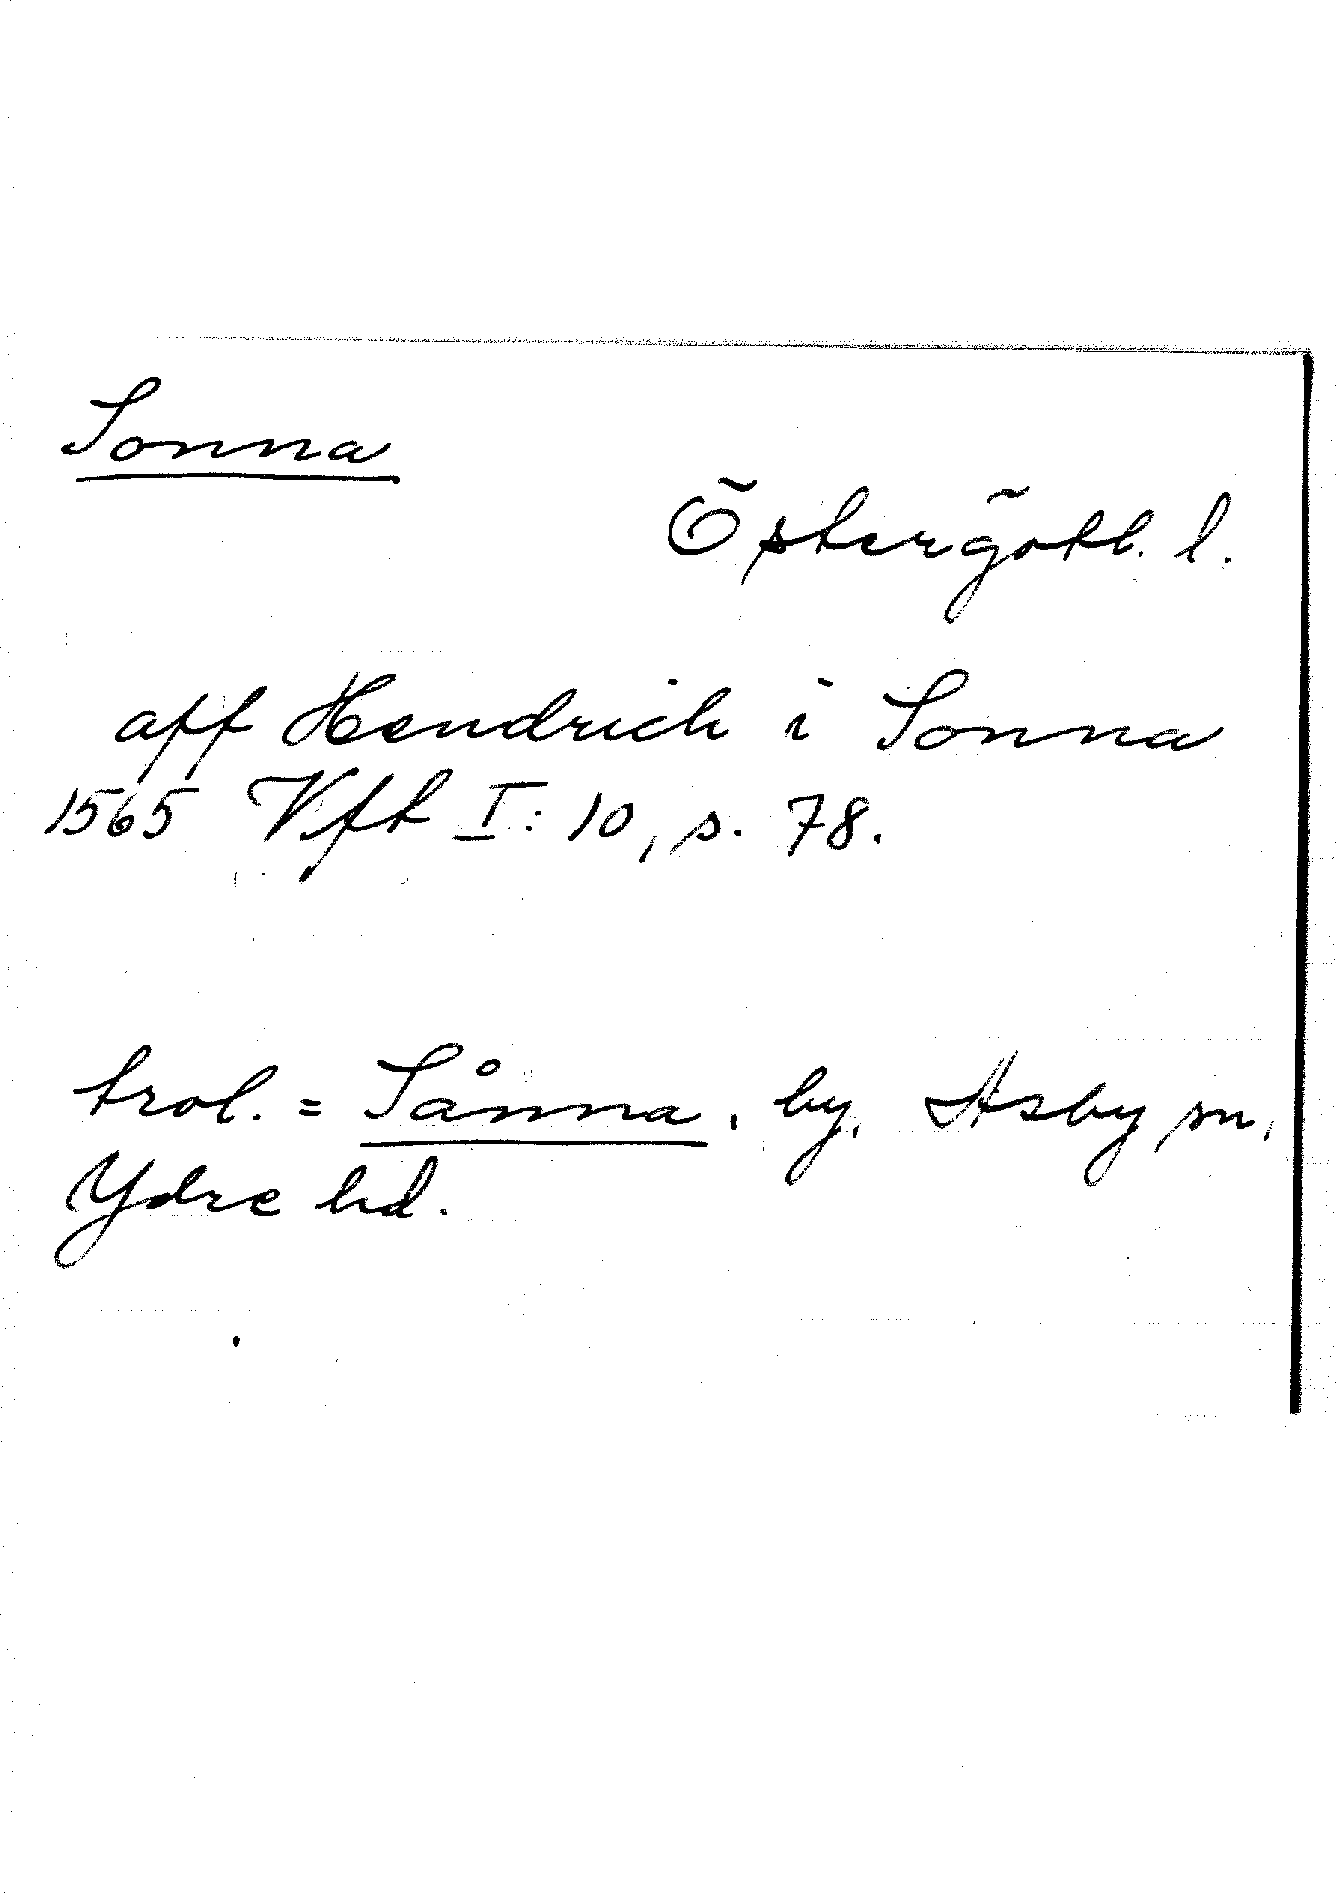 Sonna
Östergötl. l.
aff Hendrich i Sonna
1565 Vft I: 10, s. 78.
trol. = Sånna, by, Asby sn,
Ydre hd.